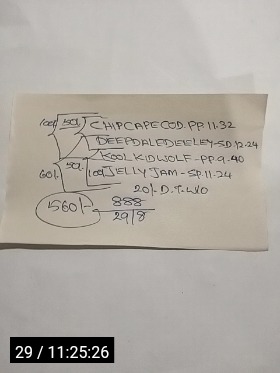 100/- 50/- CHIPCAPECOD. PP. 11.32
DEEPDALEDEELEY-SD.12-24
KOOLKIDWOLF-PP.9.40
60/- 50/- 100/- JELLY JAM - SP. 11-24
20/- D.T.W/O
560/- 888
29/8
29 / 11:25:26